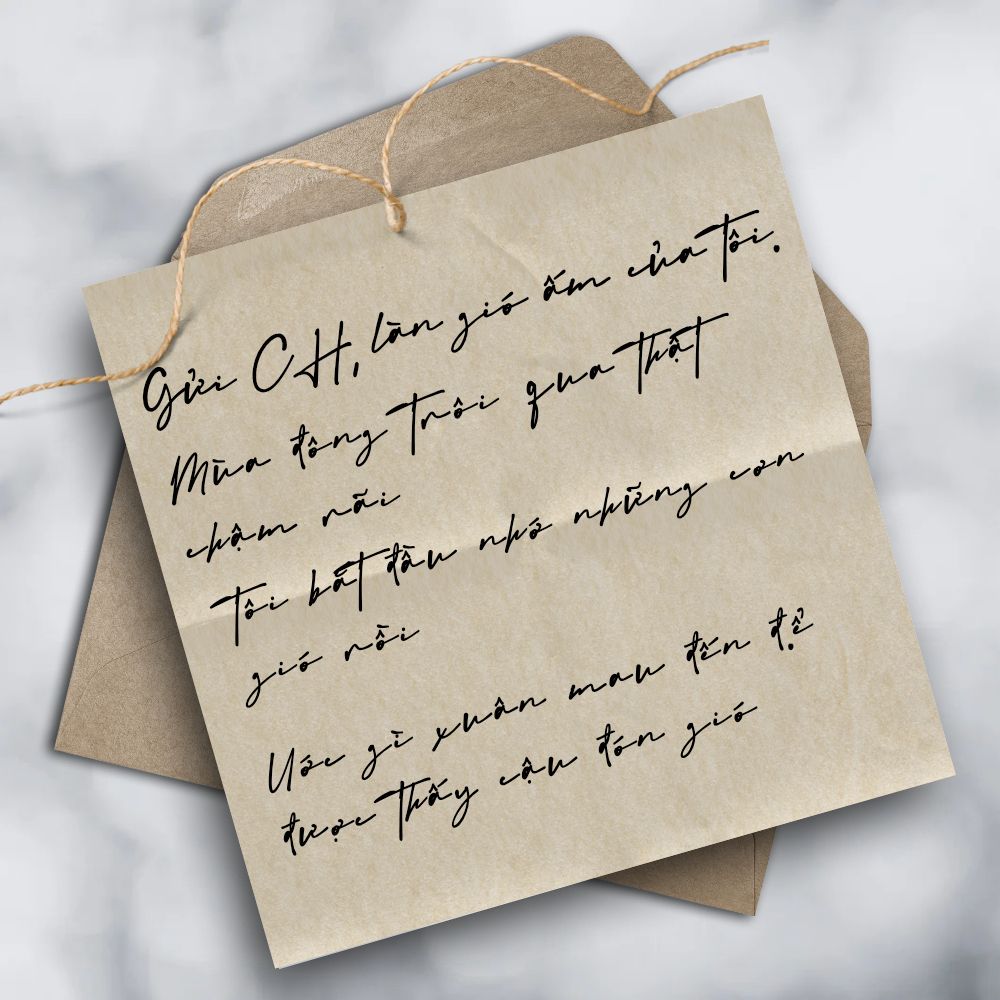 Gửi CH, làn gió ấm của tôi.
Mùa đông trôi qua thật
chậm rãi
Tôi bắt đầu nhớ những cơn
gió rồi
Ước gì xuân mau đến để
được thấy cậu đón gió